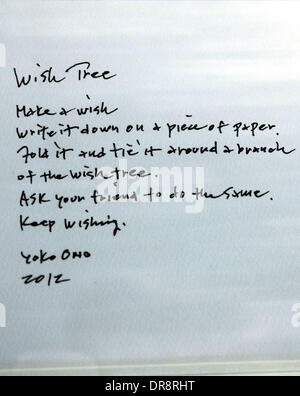 Wish Tree
Make a wish
Write it down on a piece of paper.
Fold it and tie it around a branch
of the wish tree.
Ask your friend to do the same.
Keep wishing.
Yoko Ono
2012
alamy
a
a
alamy stock photo
DR8RHT